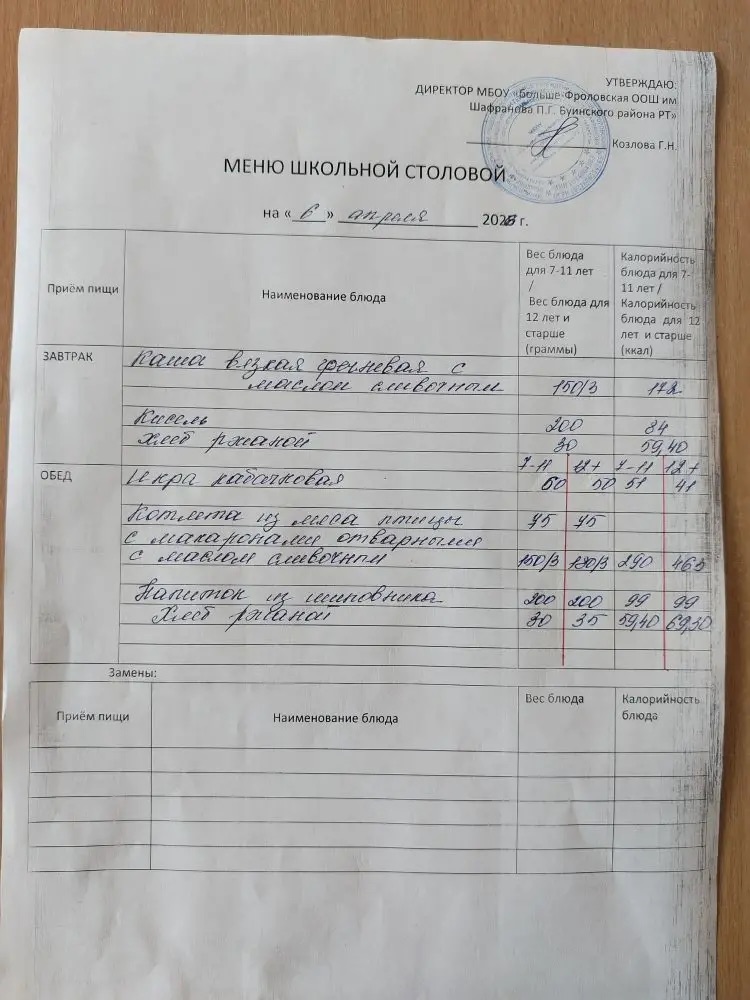 УТВЕРЖДАЮ:
ДИРЕКТОР МБОУ «Больше-Фроловская ООШ им
Шафранова П.Г. Буинского района РТ»
Козлова Г.Н.
МЕНЮ ШКОЛЬНОЙ СТОЛОВОЙ
на « 6 » апреля 2026 г.
Приём пищи
Наименование блюда
Вес блюда
для 7-11 лет
/
Вес блюда для
12 лет и
старше
(граммы)
Калорийность
блюда для 7-
11 лет /
Калорийность
блюда для 12
лет и старше
(ккал)
ЗАВТРАК Каша вязкая гречневая с
маслом сливочным 150/3 172
Кисель 200 84
Хлеб ржаной 30 59,40
7-11 12+ 7-11 12+
ОБЕД Икра кабачковая 60 50 51 41
Котлета из мяса птицы 75 75
с макаронами отварными
с маслом сливочным 150/3 180/3 290 463
Напиток из шиповника 200 200 99 99
Хлеб ржаной 30 35 59,40 69,30
Замены:
Приём пищи Наименование блюда Вес блюда Калорийность
блюда